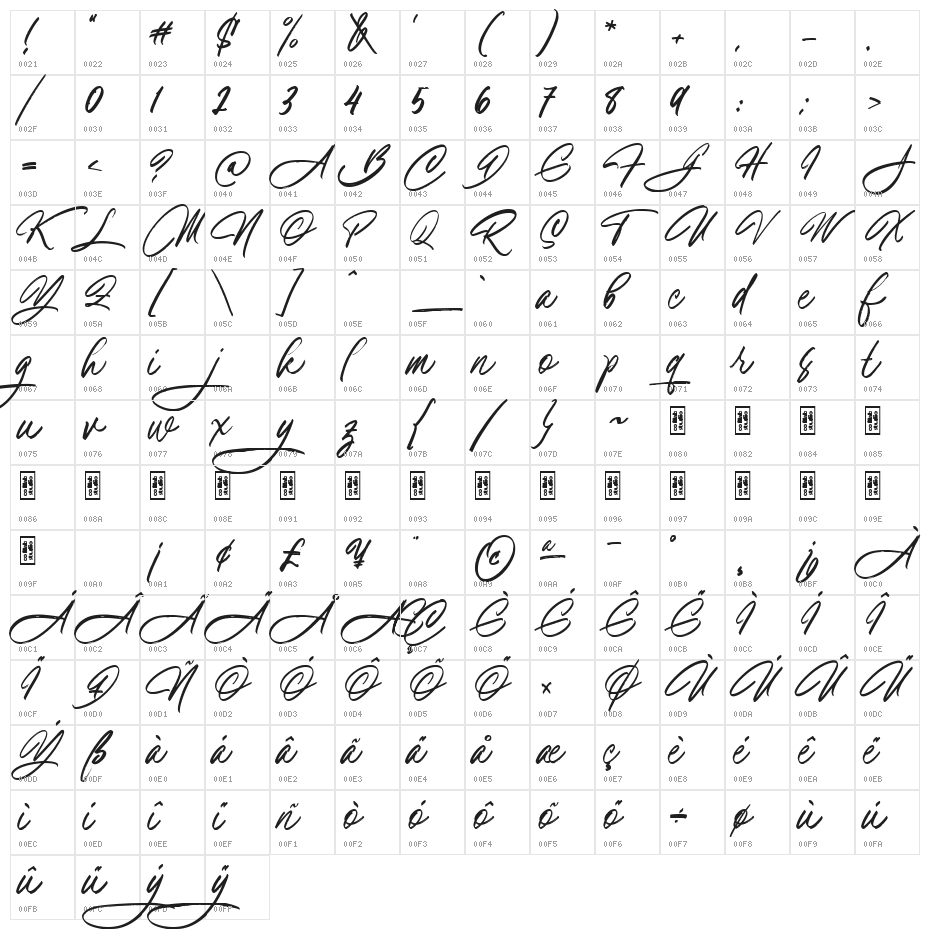 ! " # $ % & ' ( ) * + , - .
0021 0022 0023 0024 0025 0026 0027 0028 0029 002A 002B 002C 002D 002E
/ 0 1 2 3 4 5 6 7 8 9 : ; >
002F 0030 0031 0032 0033 0034 0035 0036 0037 0038 0039 003A 003B 003C
= < ? @ A B C D E F G H I J
003D 003E 003F 0040 0041 0042 0043 0044 0045 0046 0047 0048 0049 004A
K L M N O P Q R S T U V W X
004B 004C 004D 004E 004F 0050 0051 0052 0053 0054 0055 0056 0057 0058
Y Z [ \ ] ^ _ ` a b c d e f
0059 005A 005B 005C 005D 005E 005F 0060 0061 0062 0063 0064 0065 0066
g h i j k l m n o p q r s t
0067 0068 0069 006A 006B 006C 006D 006E 006F 0070 0071 0072 0073 0074
u v w x y z { | } ~
0075 0076 0077 0078 0079 007A 007B 007C 007D 007E 0080 0082 0084 0085
0086 008A 008C 008E 0091 0092 0093 0094 0095 0096 0097 009A 009C 009E
¡ ¢ £ ¥ ¨ © ª ¯ ° ¸ ¿ À
009F 00A0 00A1 00A2 00A3 00A5 00A8 00A9 00AA 00AF 00B0 00B8 00BF 00C0
Á Â Ã Ä Å Æ Ç È É Ê Ë Ì Í Î
00C1 00C2 00C3 00C4 00C5 00C6 00C7 00C8 00C9 00CA 00CB 00CC 00CD 00CE
Ï Ð Ñ Ò Ó Ô Õ Ö × Ø Ù Ú Û Ü
00CF 00D0 00D1 00D2 00D3 00D4 00D5 00D6 00D7 00D8 00D9 00DA 00DB 00DC
Ý ß à á â ã ä å æ ç è é ê ë
00DD 00DF 00E0 00E1 00E2 00E3 00E4 00E5 00E6 00E7 00E8 00E9 00EA 00EB
ì í î ï ñ ò ó ô õ ö ÷ ø ù ú
00EC 00ED 00EE 00EF 00F1 00F2 00F3 00F4 00F5 00F6 00F7 00F8 00F9 00FA
û ü ý ÿ
00FB 00FC 00FD 00FF